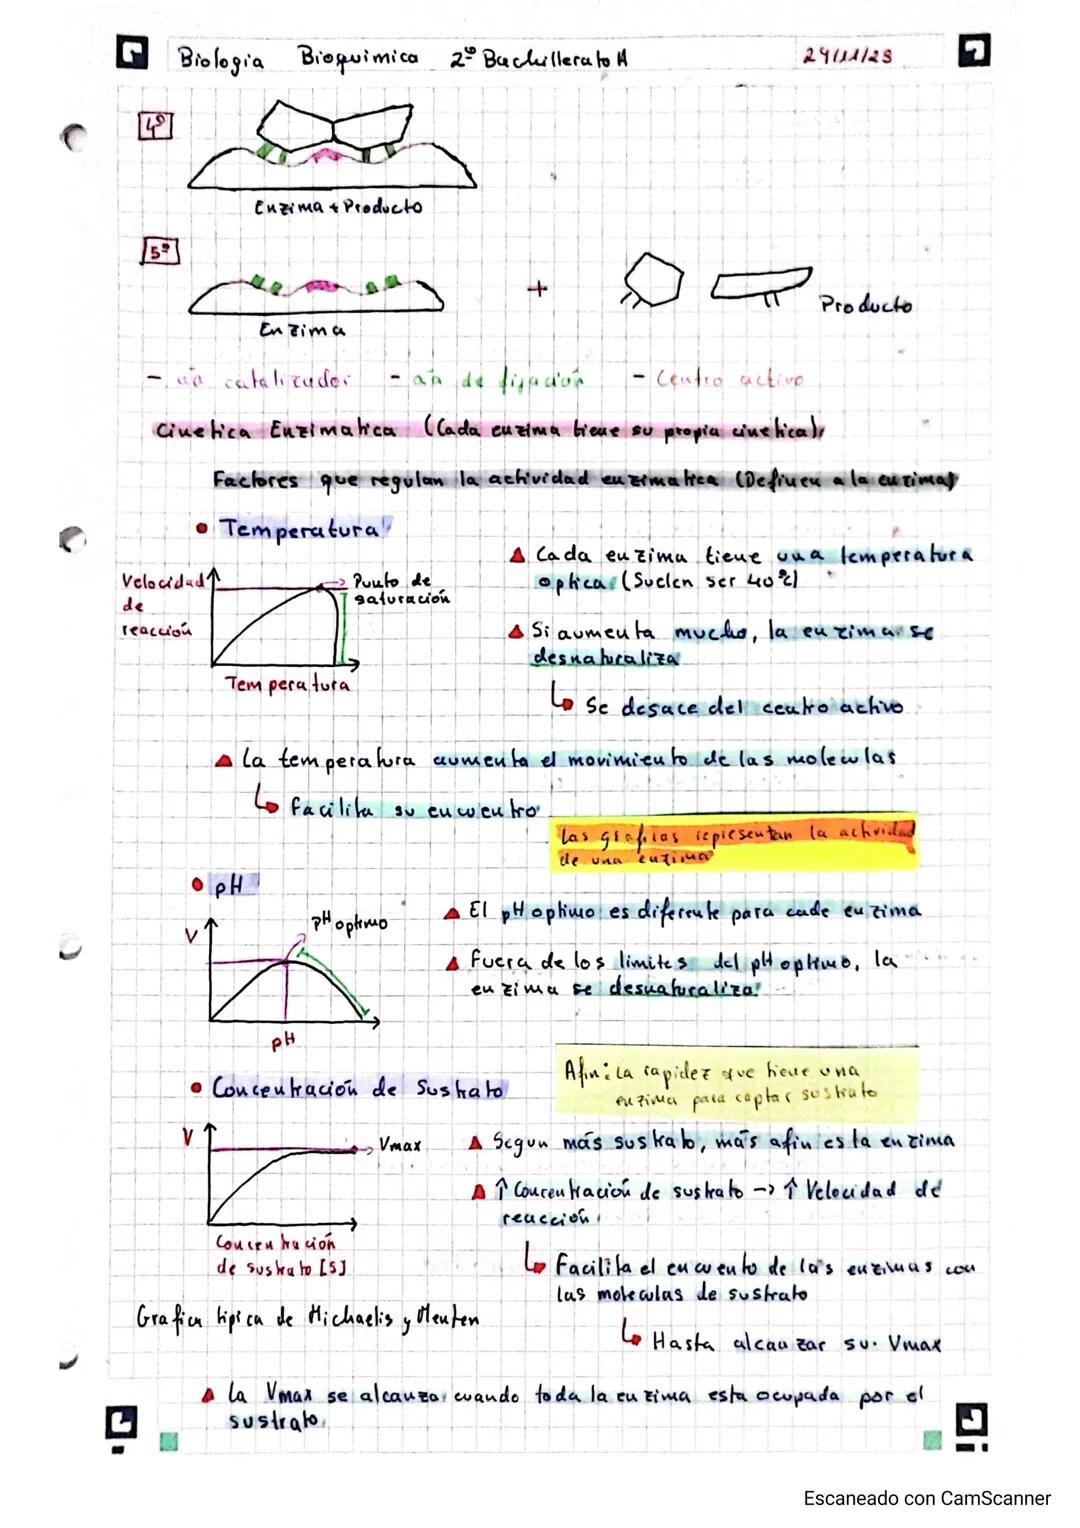 Biologia Bioquimica 2º Bachillerato A 29/11/23
4º
Enzima + Producto
5º
+
Enzima
Producto
- aa catalizador - aa de fijación - Centro activo
Cinetica Enzimatica (Cada enzima tiene su propia cinetica)
Factores que regulan la actividad enzimatica (Definen a la enzima)
• Temperatura
Velocidad de reacción
Punto de saturación
Temperatura
Cada enzima tiene una temperatura
optica (Suelen ser 40ºc)
Si aumenta mucho, la enzima se
desnaturaliza
Se desace del centro activo
La temperatura aumenta el movimiento de las moleculas
Facilita su encuentro
Las grafias representan la actividad
de una enzima
• pH
V
pH optimo
pH
El pH optimo es diferente para cade enzima
Fuera de los limites del pH optimo, la
enzima se desnaturaliza
• Concentración de Sustrato
Afin: La rapidez que tiene una
enzima para captar sustrato
V
Vmax
Concentración
de sustrato [S]
Segun más sustrato, más afin es la enzima
↑ Concentración de sustrato -> ↑ Velocidad de
reacción
Facilita el encuento de las enzimas con
las moleculas de sustrato
Grafica tipica de Michaelis y Menten
Hasta alcanzar su Vmax
La Vmax se alcanza cuando toda la enzima esta ocupada por el
sustrato
Escaneado con CamScanner